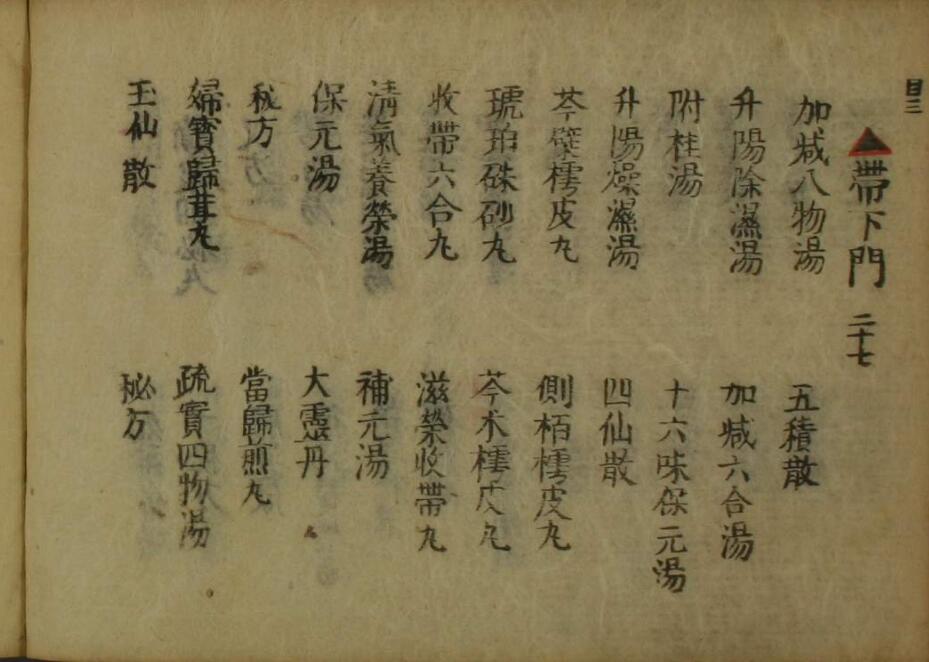 目三
帶下門 二十七
加减八物湯 五積散
升陽除濕湯 加减六合湯
附桂湯 十六味保元湯
升陽燥濕湯 四仙散
芩檗樗皮丸 側栢樗皮丸
琥珀硃砂丸 芩术樗皮丸
收帶六合丸 滋榮收帶丸
淸氣養榮湯 補元湯
保元湯 大靈丹
秘方 當歸煎丸
婦寳歸茸丸 疏實四物湯
玉仙散 秘方